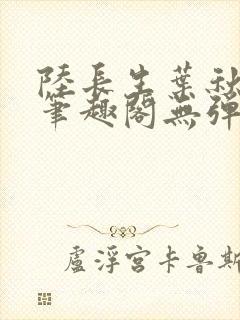 陸長生葉秋
筆趣閣無彈
盧浮宮卡魯斯